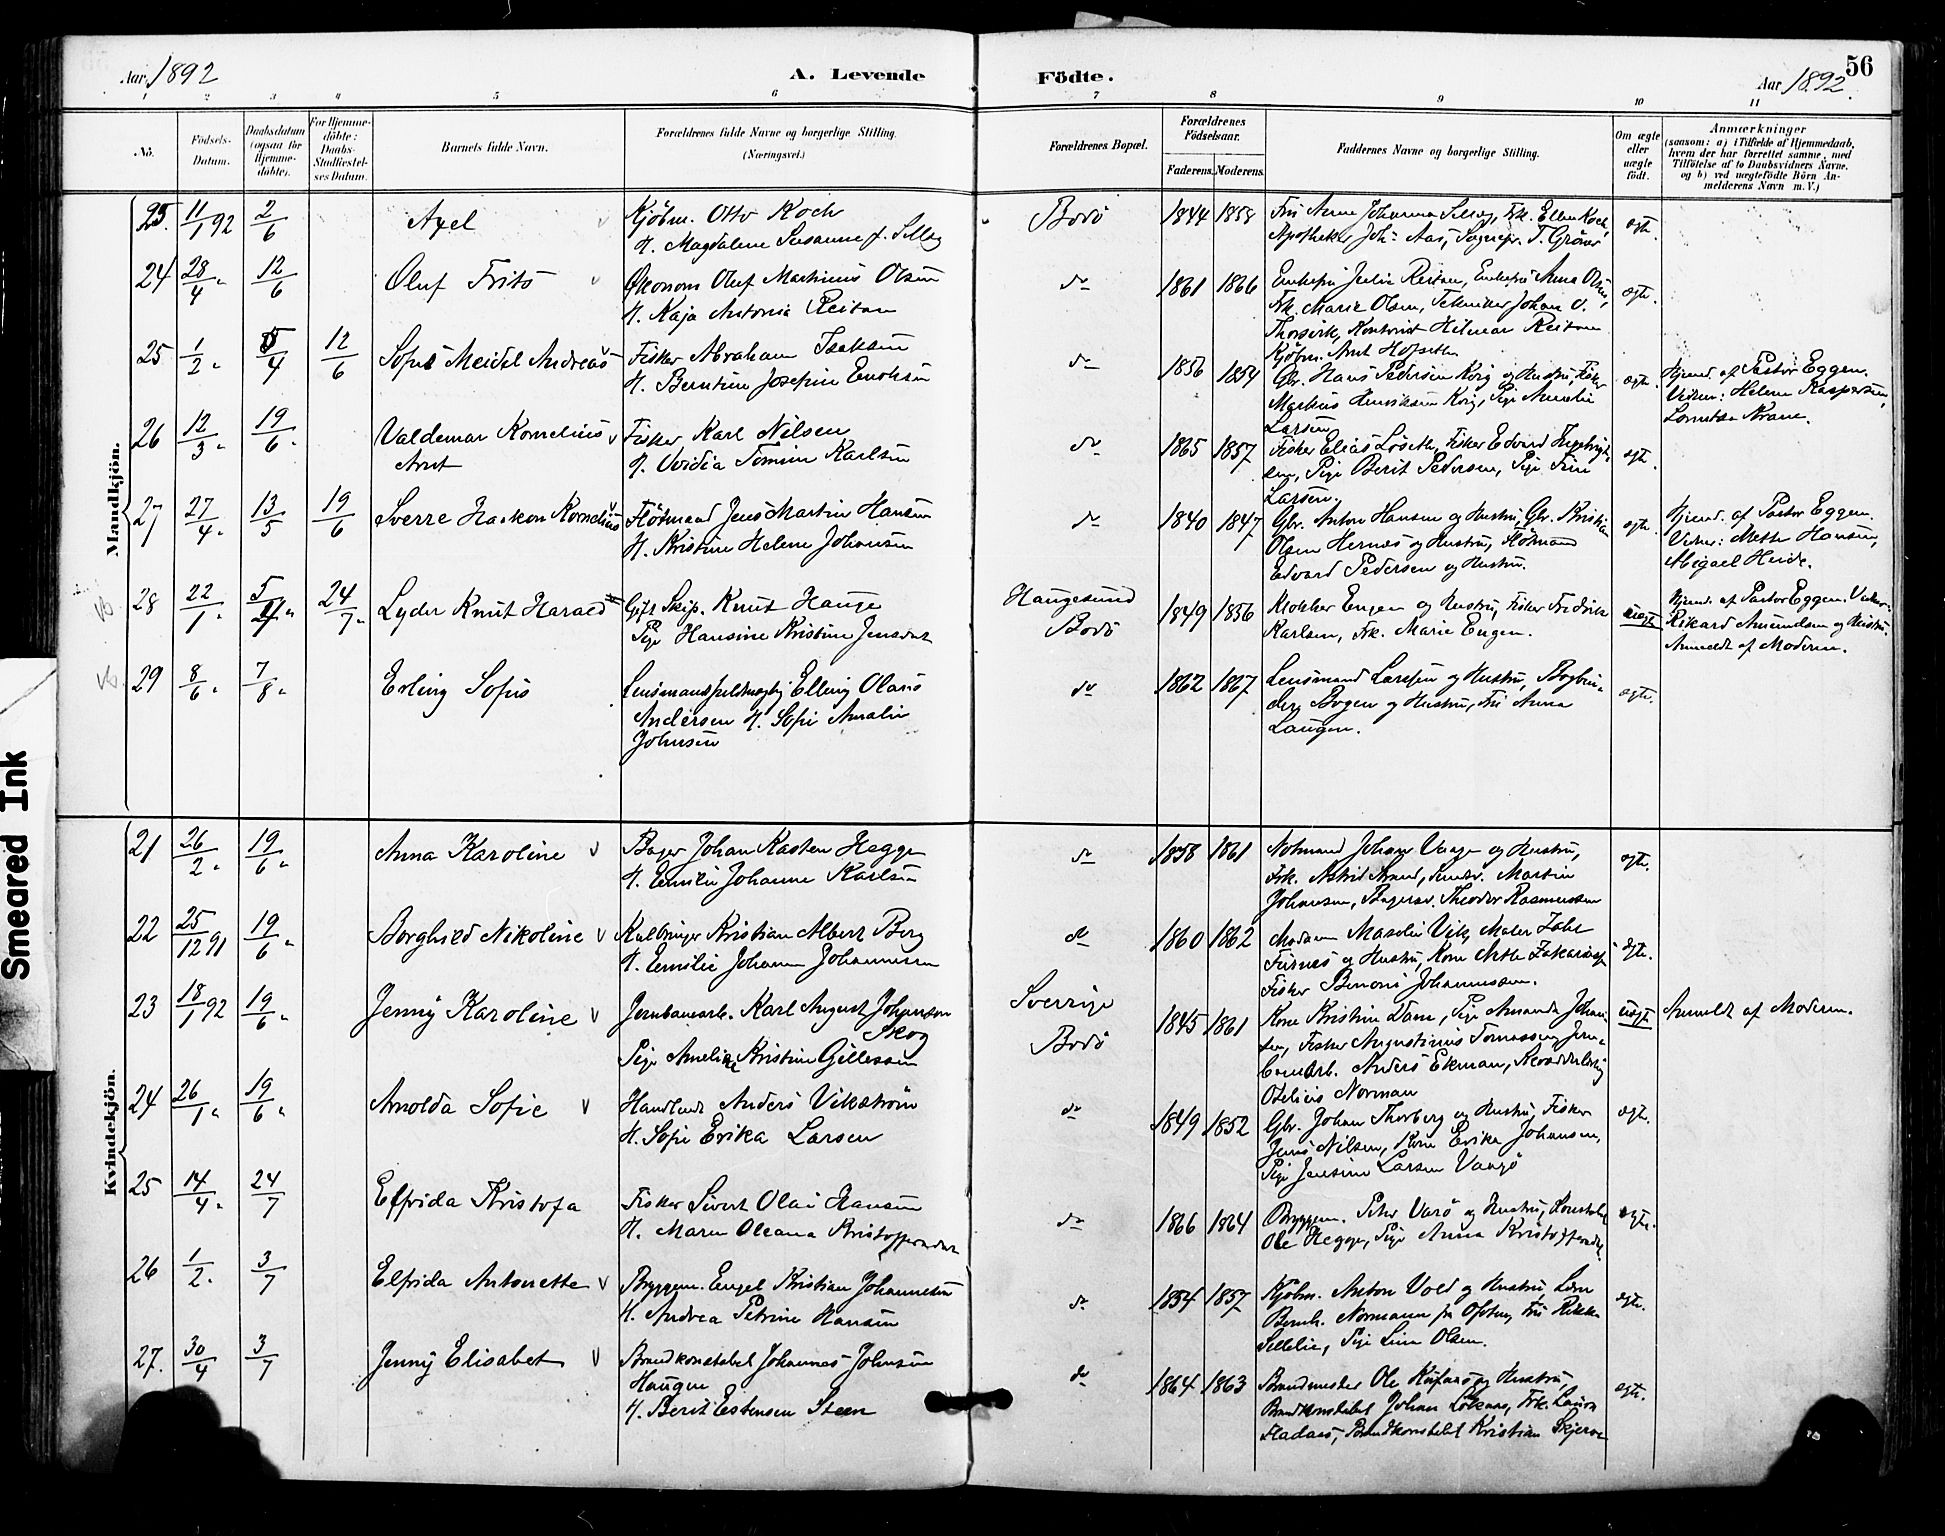 Aar 1892
A. Levende
Födte.
Aar 1892.
56
1 2 3 4 5 6 7 8 9 10 11
No.
Födsels-
Datum.
Daabsdatum
(ogsaa for
Hjemme-
döbte).
For Hjemme-
döbte:
Daabs-
Stadfæstel-
ses Datum.
Barnets fulde Navn.
Forældrenes fulde Navne og borgerlige Stilling.
(Næringsvei.)
Forældrenes Bopæl.
Forældrenes
Födselsaar.
Faderens. Moderens.
Faddernes Navne og borgerlige Stilling.
Om ægte
eller
uægte
födt.
Anmærkninger
(saasom: a) i Tilfælde af Hjemmedaab,
hvem der har forrettet samme, med
Tilföielse af to Daabsvidners Navne.
og b) ved uægtefödte Börn An-
melderens Navn m. V.)
Mandkjön.
11/1 92 2/6 Axel Kjöbm. Otto Koch Bodö 1844 1858 Fru Anna Johanna Frk. Ellen Koch, ægte.
H. Magdalene Susanne f. Apotheker Joh. Aas, Sognepr. T. Gröner
24 28/4 " 12/6 Oluf Frits Økonom Oluf Martinius Olsen do 1861 1866 Enkefru Julie Reitan, Enkefru Anna Olsen, ægte.
H. Kaja Antonia Reitan Frk. Marie Olsen, Tekniker Johan O.
Thorsvik, Kontorist Hilmar Reitan
Kjöbm. Arnt Hofseth
25 1/2 " 12/6 Sofus Meidel Andreas Fisker Abraham Isaksen do 1856 1854 Gbr. Hans Pedersen og Hustru, Fisker ægte. Hjemd. af Pastor Eggen.
H. Berntine Josefine Enoksen Markus Henriksen Pige Amalie Vidner: Helene Kaspersen,
Larsen Krane.
26 12/3 " 19/6 " Valdemar Kornelius Fisker Karl Nilsen do 1865 1857 Fisker Elias Löseth, Fisker Edvard ægte.
Arnt H. Ovidia Tomine Karlsen Pige Berit Pedersen, Pige Trine
Larsen.
27 27/4 " 13/5 19/6 Sverre Haakon Kornelius Flötmand Jens Martin Hansen do 1840 1847 Gbr. Anton Hansen og Hustru, Gbr. Kristian ægte. Hjemd. af Pastor Eggen.
H. Kristine Helene Johansen Olsen Hernæs og Hustru, Flötmand Vidner: Mette Hansen,
Edvard Pedersen og Hustru. Abigael Heide.
28 22/1 " 24/7 " Lyder Knut Harald Gift Skip. Knut Hauge Haugesund 1849 1856 Klokker Engen og Hustru, Fisker Fredrik uægte Hjemd. af Pastor Eggen. Vidner:
Pige Hansine Kristine Jensdat Bodö Karlsen, Frk. Marie Engen. Rikard Amundsen og Hustru.
Anmeldt af Moderen.
29 8/6 " 7/8 " Erling Sofus Lensmandsfuldmægtig Elling Olaus do 1862 1867 Lensmand Larssen og Hustru, Bogbin- ægte.
Andersen H. Sofie Amalie der Bogen og Hustru, Fru Anna
Johnsen Laugen.
Kvindekjön.
21 26/2 " 19/6 " Anna Karoline Bager Johan Kasten Hegge do 1858 1861 Notmand Johan Vaage og Hustru, ægte.
H. Emilie Johanne Karlsen Frk. Astrid Strand, Martin
Johansen, Bagersv. Theodor Rasmussen
22 25/12 91 19/6 " Borghild Nikoline Kristian Albert Berg do 1860 1862 Madam Maselie Vik, Maler Joh. ægte.
H. Emilie Johanne Johannesen Furnes og Hustru, Kone Zakariasen
Fisker Benoni Johannessen.
23 18/1 92 19/6 " Jenny Karoline Jernbanearb. Karl August Johansson Sverrige 1845 1861 Kone Kristine Dam, Pige Amanda Johan- uægte Anmeldt af Moderen.
Skog Bodö sen, Fisker Augustinius Tomassen, Jern-
Pige Kristine Gillessen banearb. Anders Ekman,
Norman
24 26/1 " 19/6 " Arnolda Sofie Handlende Anders Vikström do 1849 1852 Gbr. Johan Thorberg og Hustru, Fisker ægte.
H. Sofie Erika Larsen Jens Nilsen, Kone Erika Johansen,
Pige Jensine Larsen Vaagö
25 14/4 " 24/7 Elfrida Kristofa Fisker Sivert Olai Hansen do 1866 1864 Bryggem. Peter Varö og Hustru, Konstabel ægte.
H. Maren Oleana Kristoffersdat Ole Hegge, Pige Anna Kristoffersdt.
26 1/2 " 3/7 Elfrida Antonette Bryggem. Engel Kristian Johannesen do 1854 1857 Kjöbm. Anton Vold og Hustru, ægte.
H. Andrea Petrine Hansen Bernh. Normann fra Ofoten, Fru Rikke
Pige Line Olsen.
27. 30/4 3/7 Jenny Elisabet Brandkonstabel Johannes Johnsen do 1864 1863 Brandmester Ole og Hustru, ægte.
Haugen Brandkonstabel Johan Frk. Laura
H. Berit Estensen Steen Brandkonstabel Kristian Skjerve
Smeared Ink